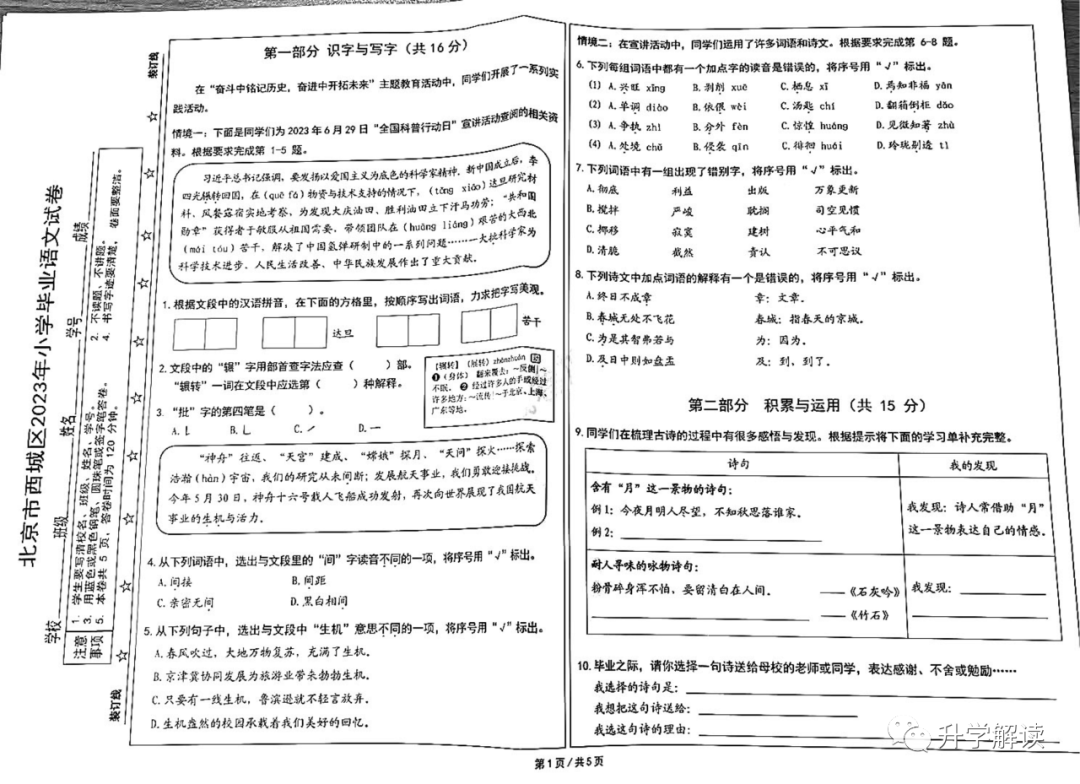 北京市西城区2023年小学毕业语文试卷
学校 班级 姓名 学号 成绩
注意事项
1. 学生要写清校名、班级、姓名、学号。
2. 不读题、不讲题。
3. 用蓝色或黑色钢笔、圆珠笔或签字笔答卷。
4. 书写字迹要清楚，卷面要整洁。
5. 本卷共 5 页，答卷时间为 120 分钟。
装订线
装订线
第一部分 识字与写字（共 16 分）
在“奋斗中铭记历史，奋进中开拓未来”主题教育活动中，同学们开展了一系列实
践活动。
情境一：下面是同学们为 2023 年 6 月 29 日“全国科普行动日”宣讲活动查阅的相关资
料。根据要求完成第 1-5 题。
习近平总书记强调，要发扬以爱国主义为底色的科学家精神。新中国成立后，李
四光辗转回国，在（quē fá）物资与技术支持的情况下，（tōng xiāo）达旦研究材
料、风餐露宿实地考察，为发现大庆油田、胜利油田立下汗马功劳；“共和国
勋章”获得者于敏服从祖国需要，带领团队在（huāng liáng）艰苦的大西北
（mái tóu）苦干，解决了中国氢弹研制中的一系列问题………一大批科学家为
科学技术进步、人民生活改善、中华民族发展作出了重大贡献。
1. 根据文段中的汉语拼音，在下面的方格里，按顺序写出词语，力求把字写美观。
达旦
苦干
2. 文段中的“辗”字用部首查字法应查（ ）部。
“辗转”一词在文段中应选第（ ）种解释。
【辗转】（展转）zhǎnzhuǎn
❶（身体）翻来覆去：～反侧｜～
不眠。❷ 经过许多人的手或经过
许多地方：～流传｜～于北京、上海、
广东等地。
3. “批”字的第四笔是（ ）。
A. ㇙ B. ㇄ C. ㇒ D. ㇐
“神舟”往返、“天宫”建成、“嫦娥”探月、“天问”探火……探索
浩瀚（hàn）宇宙，我们的研究从未间断；发展航天事业，我们勇敢迎接挑战。
今年 5 月 30 日，神舟十六号载人飞船成功发射，再次向世界展现了我国航天
事业的生机与活力。
4. 从下列词语中，选出与文段里的“间”字读音不同的一项，将序号用“√”标出。
A. 间接 B. 间距
C. 亲密无间 D. 黑白相间
5. 从下列句子中，选出与文段中“生机”意思不同的一项，将序号用“√”标出。
A. 春风吹过，大地万物复苏，充满了生机。
B. 京津冀协同发展为旅游业带来勃勃生机。
C. 只要有一线生机，鲁滨逊就不轻言放弃。
D. 生机盎然的校园承载着我们美好的回忆。
情境二：在宣讲活动中，同学们运用了许多词语和诗文。根据要求完成第 6-8 题。
6. 下列每组词语中都有一个加点字的读音是错误的，将序号用“√”标出。
(1) A. 兴旺 xīng B. 剥削 xuē C. 栖息 xī D. 焉知非福 yān
(2) A. 单词 diào B. 依偎 wēi C. 汤匙 chí D. 翻箱倒柜 dǎo
(3) A. 争执 zhí B. 分外 fèn C. 惊惶 huáng D. 见微知著 zhù
(4) A. 处境 chǔ B. 侵袭 qīn C. 徘徊 huái D. 玲珑剔透 tì
7. 下列词语中有一组出现了错别字，将序号用“√”标出。
A. 彻底 利益 出版 万象更新
B. 搅拌 严峻 耽搁 司空见惯
C. 挪移 寂寞 建树 心平气和
D. 清脆 截然 肯认 不可思议
8. 下列诗文中加点词语的解释有一个是错误的，将序号用“√”标出。
A. 终日不成章 章：文章。
B. 春城无处不飞花 春城：指春天的京城。
C. 为是其智弗若与 为：因为。
D. 及日中则如盘盂 及：到、到了。
第二部分 积累与运用（共 15 分）
9. 同学们在梳理古诗的过程中有很多感悟与发现。根据提示将下面的学习单补充完整。
诗句 我的发现
含有“月”这一景物的诗句：
例 1：今夜月明人尽望，不知秋思落谁家。
例 2：
我发现：诗人常借助“月”
这一景物表达自己的情感。
耐人寻味的咏物诗句：
粉骨碎身浑不怕，要留清白在人间。 ——《石灰吟》
——《竹石》
我发现：
10. 毕业之际，请你选择一句诗送给母校的老师或同学，表达感谢、不舍或勉励……
我选择的诗句是：
我想把这句诗送给：
我选这句诗的理由：
第 1 页 / 共 5 页
升学解读